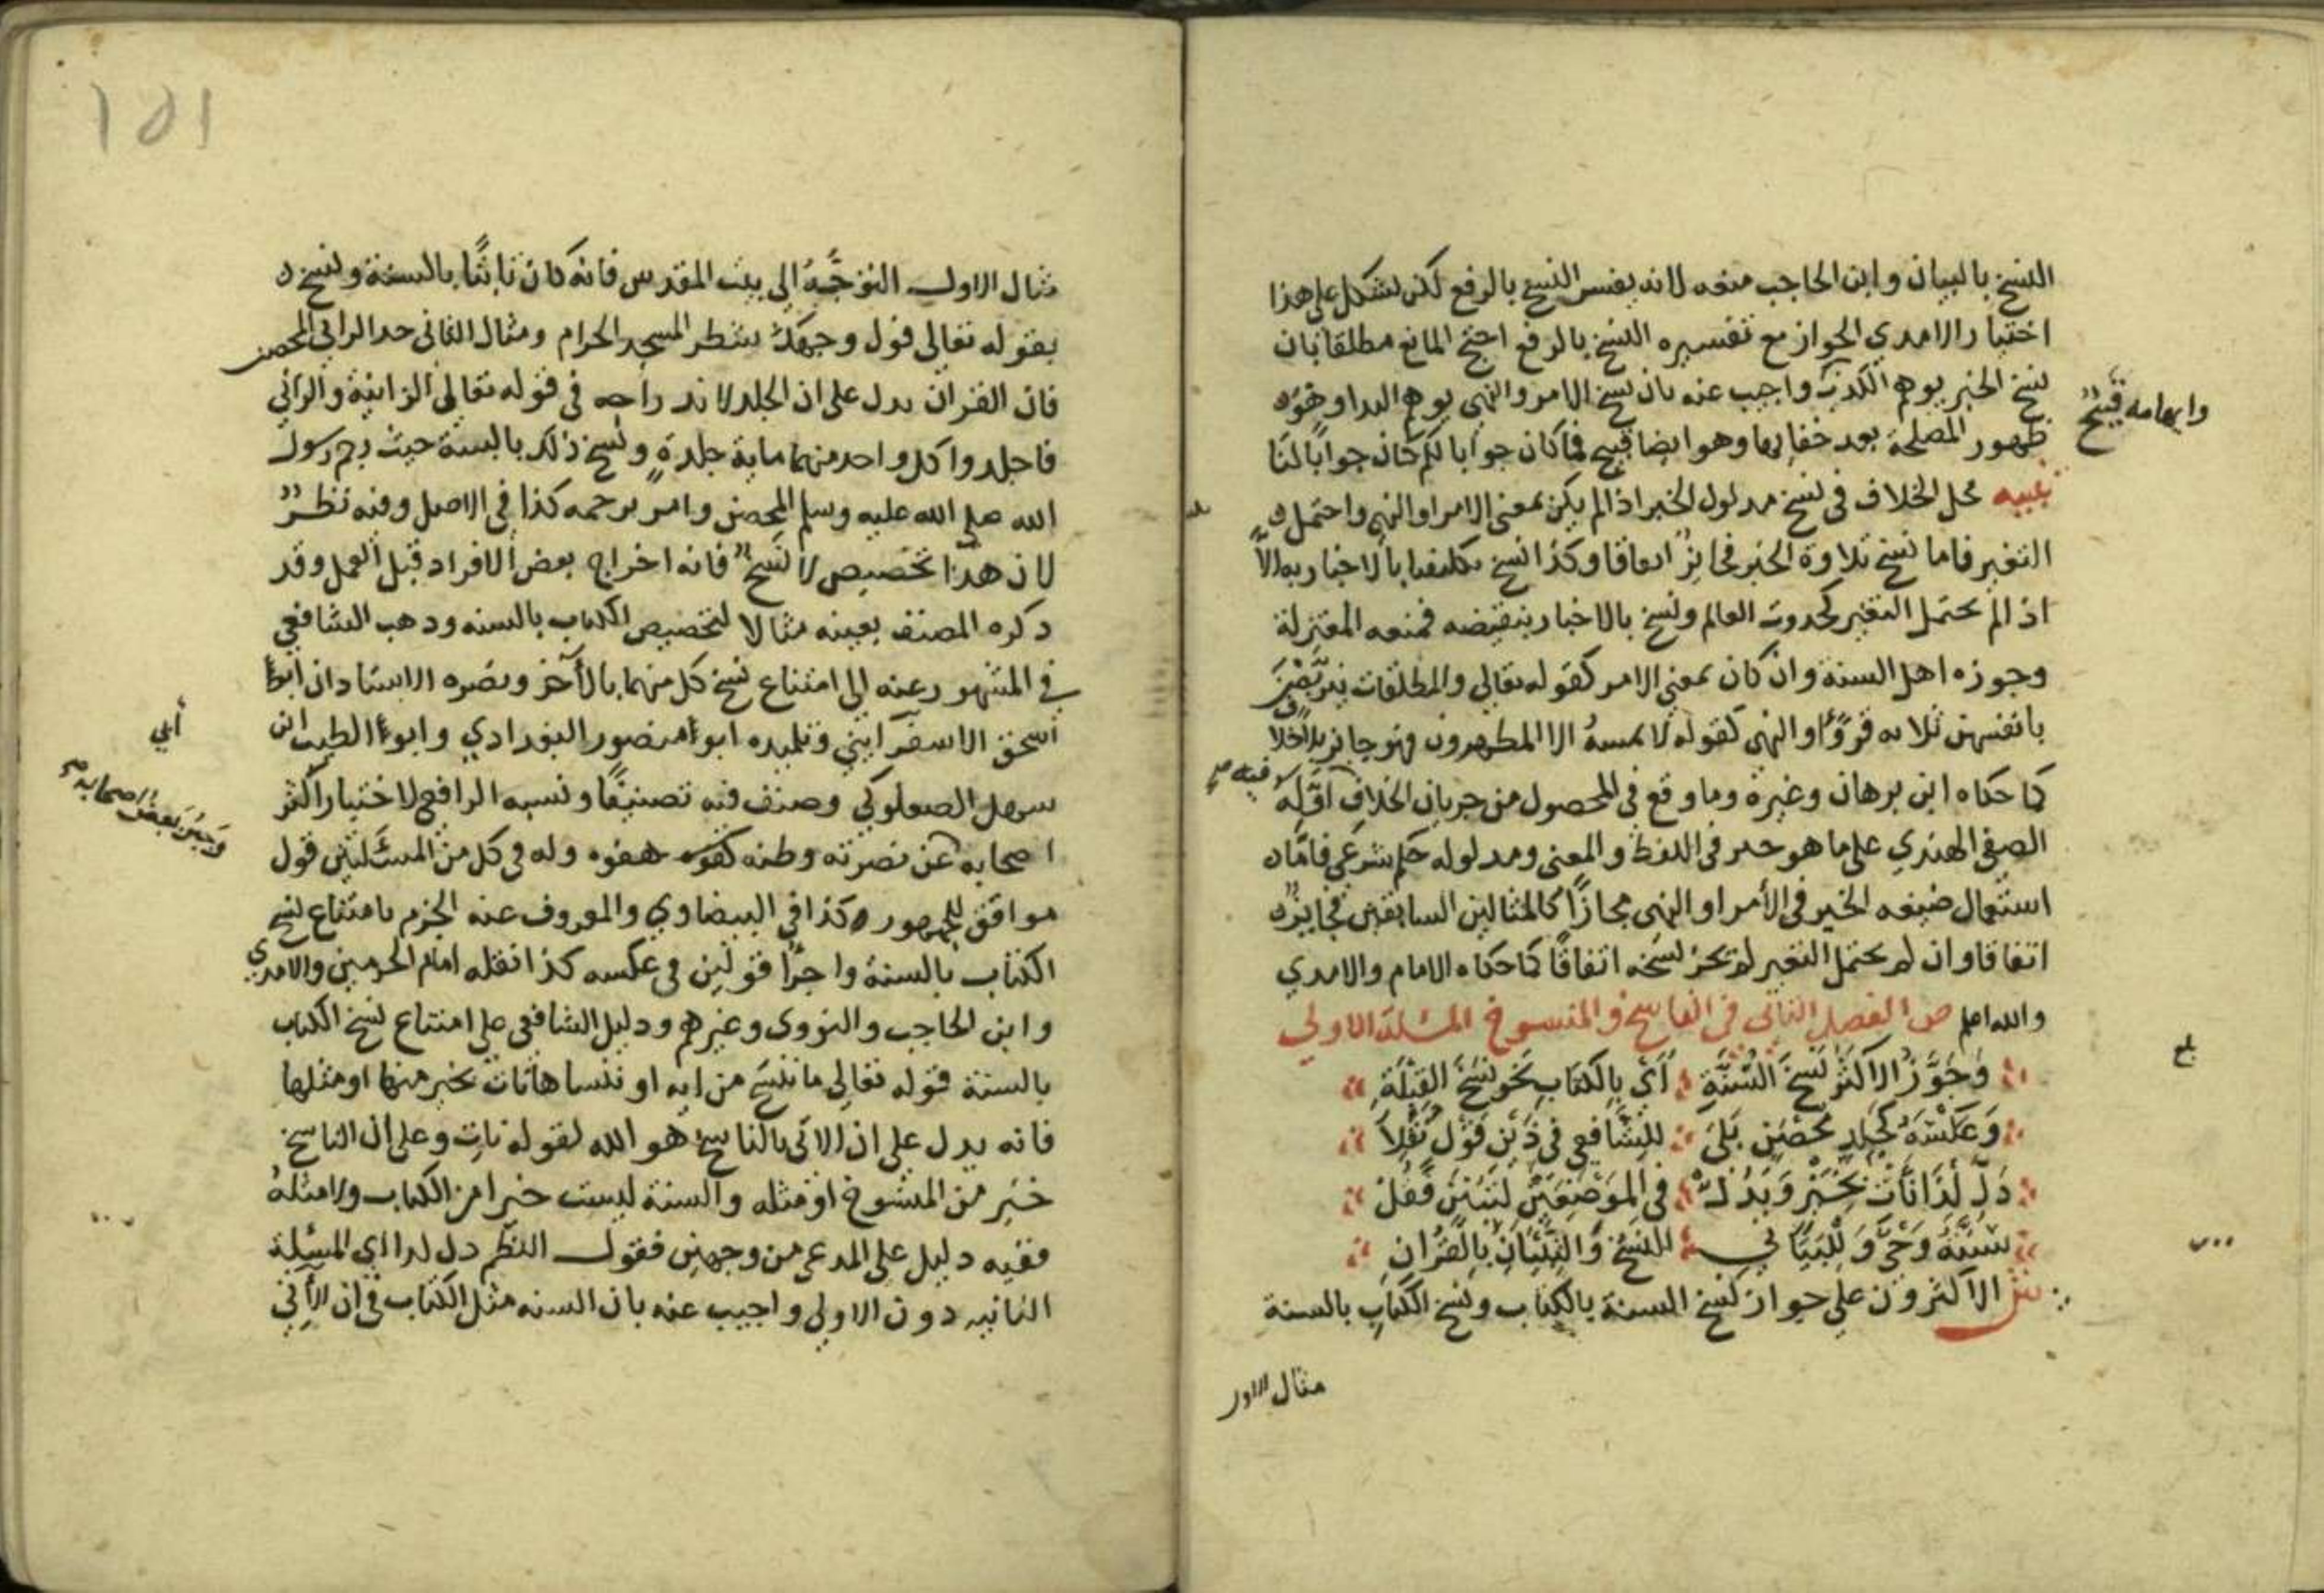 النسخ بالبيان وابن الحاجب منعه لانه يفسر النسخ بالرفع لكن يشكل على هذا
اختيار الامدي الجواز مع تفسيره النسخ بالرفع احتج المانع مطلقا بان
نسخ الخبر يوهم الكذب واجيب عنه بان نسخ الامر والنهي يوهم البدا وهو
وايهامه قبيح
ظهور المصلحة بعد خفايها وهو ايضا قبيح فما كان جوابا لكم كان جوابا لنا
تنبيه محل الخلاف في نسخ مدلول الخبر اذا لم يكن بمعنى الامر او النهي واحتمل
التغير فاما نسخ تلاوة الخبر فجايز اتفاقا وكذا نسخ تكليفنا بالاخبار به الا
اذا لم يحتمل التغير كحدوث العالم ونسخ بالاخبار بنقيضه فمنعه المعتزلة
وجوزه اهل السنة وان كان بمعنى الامر كقوله تعالى والمطلقات يتربصن
بانفسهن ثلاثه قروء او النهي كقوله لا يمسه الا المطهرون فهو جايز بلا خلاف
كما حكاه ابن برهان وغيره وما وقع في المحصول من جريان الخلاف
فيه صح
الصفي الهندي على ما هو خبر في اللفظ والمعنى ومدلوله حكم شرعي فاما
استعمال صيغه الخبر في الأمر او النهي مجازا كالمثالين السابقين فجايز
اتفاقا وان لم يحتمل التغير لم يجز نسخه اتفاقا كما حكاه الامام والامدي
والله اعلم ص الفصل الثاني في الناسخ والمنسوخ المسئلة الاولى
وجوز الاكثر نسخ السنة أي بالكتاب نحو نسخ القبلة
وعكسه كجلد محصن بلى للشافعي في ذين قول نقلا
دل لذا نأت بخير وبدل في الموضعين لتبين فقل
سنة وحي وللبيان النسخ والتبيان بالقرآن
ش الاكثرون على جواز نسخ السنة بالكتاب ونسخ الكتاب بالسنة
مثال الاول
١٥١
مثال الاول التوجه الى بيت المقدس فانه كان ثابتا بالسنة ونسخ
بقوله تعالى فول وجهك شطر المسجد الحرام ومثال الثاني حد الزاني المحصن
فان القران يدل على ان الجلد في قوله تعالى الزانية والزاني
فاجلدوا كل واحد منهما ماية جلدة ونسخ ذلك بالسنة حيث رجم رسول
الله صلى الله عليه وسلم المحصن وامر برجمه كذا في الاصل وفيه نظر
لان هذا تخصيص لا نسخ فانه اخراج بعض الافراد قبل العمل وقد
ذكره المصنف بعينه مثالا لتخصيص الكتاب بالسنه وذهب الشافعي
في المشهور عنه الى امتناع نسخ كل منهما بالآخر ونصره الاستاذان ابوا
اسحق الاسفرايني وتلميذه ابو منصور البغدادي وابو الطيب ابن
أبي
سهل الصعلوكي وصنف فيه تصنيفا ونسبه الرافعي لاختيار اكثر
اصحابه عن نصرته وظنه هفوه وله في كل من المسئلتين قول
موافق للجمهور كذا في البيضاوي والمعروف عنه الجزم بامتناع نسخ
الكتاب بالسنة واجرا قولين في عكسه كذا نقله امام الحرمين والامدي
وابن الحاجب والنووي وغيرهم ودليل الشافعي على امتناع نسخ الكتاب
بالسنة قوله تعالى ما ننسخ من ايه او ننساها نات بخير منها او مثلها
فانه يدل على ان الاتي بالناسخ هو الله لقوله نات وعلى ان الناسخ
خير من المنسوخ او مثله والسنة ليست خيرا من الكتاب ولا مثله
ففيه دليل على المدعى من وجهين فقول النظم دل لذا اي المسئلة
الثانيه دون الاولى واجيب عنه بان السنه مثل الكتاب في ان الآتي